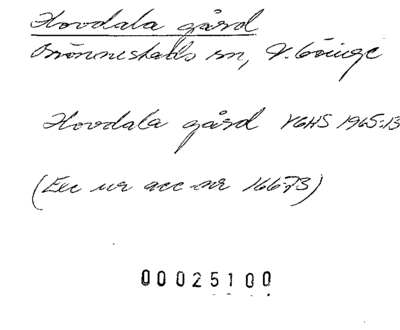 Hovdala gård
Brönnestads sn, V. Göinge
Hovdala gård VGHS 1965:13
(Exc ur acc nr 16673)
00025100